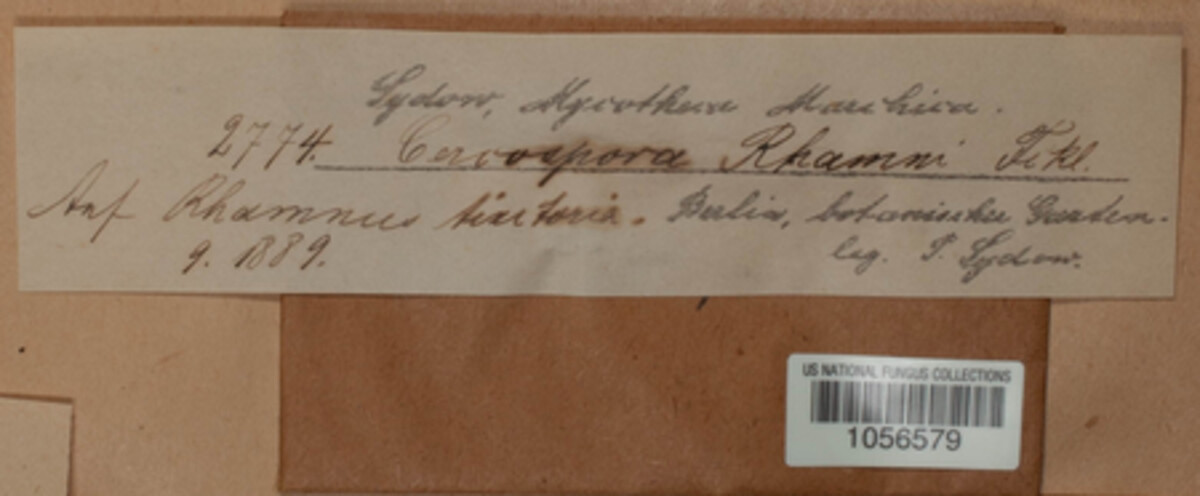 Sydow, Mycotheca Marchica.
2774. Cercospora Rhamni Fckl.
Auf Rhamnus tinctoria. Berlin, botanischer Garten.
9. 1889. leg. P. Sydow.
US NATIONAL FUNGUS COLLECTIONS
1056579